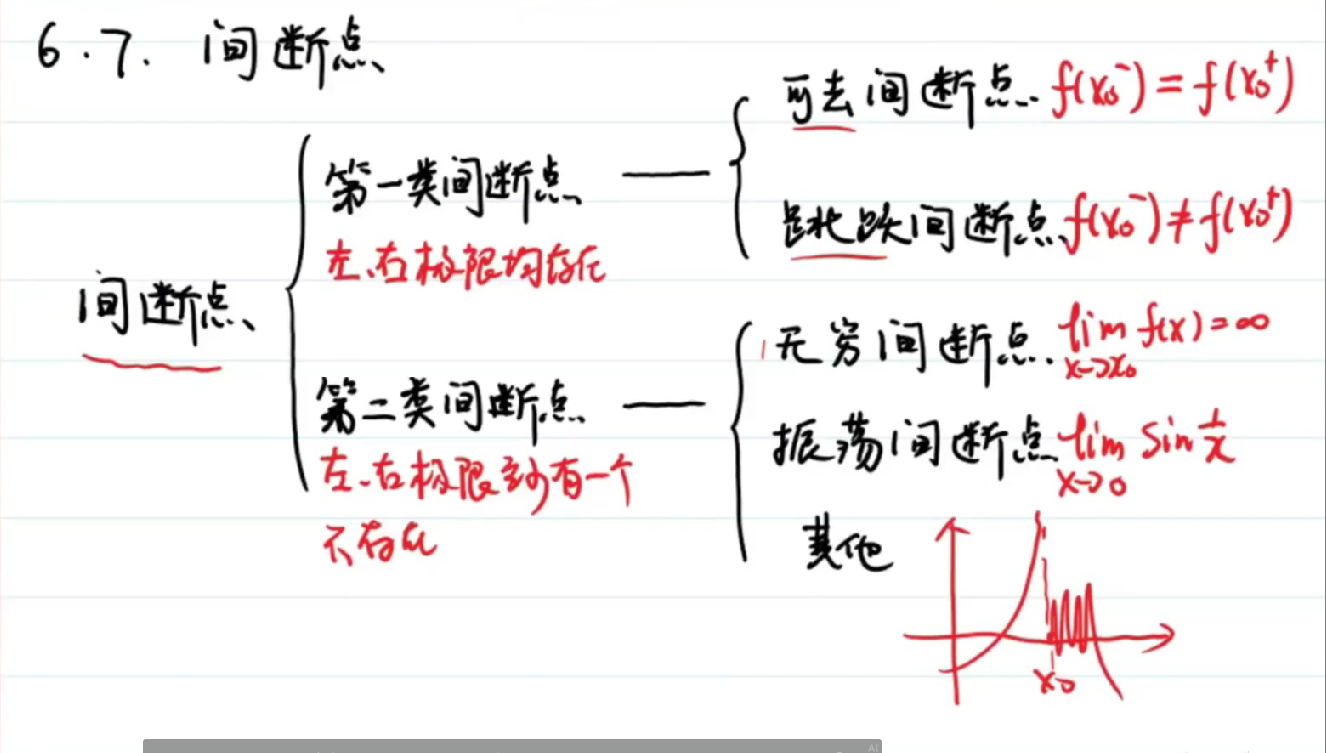 6.7. 间断点
可去间断点. f(x₀⁻) = f(x₀⁺)
第一类间断点
左、右极限均存在
跳跃间断点 f(x₀⁻) ≠ f(x₀⁺)
间断点
无穷间断点. lim f(x) = ∞
x→x₀
第二类间断点
左、右极限至少有一个
不存在
振荡间断点 lim sin 1/x
x→0
其他
x₀
AI